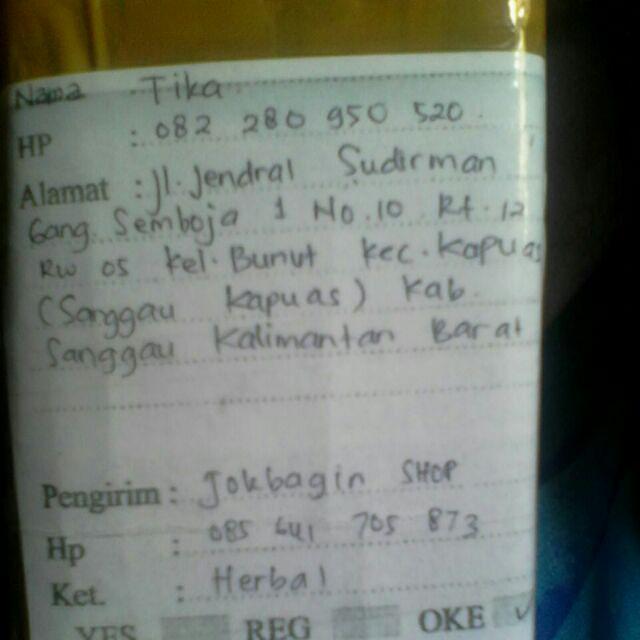 Nama Tika
HP : 082 280 950 520
Alamat : Jl. Jendral Sudirman
Gang. Semboja 1 No. 10 Rt. 12
RW 05 Kel. Bunut Kec. Kapuas
(Sanggau Kapuas) Kab.
Sanggau Kalimantan Barat
Pengirim : Jokbagin SHOP
Hp : 085 641 705 873
Ket. : Herbal
YES REG OKE ✓